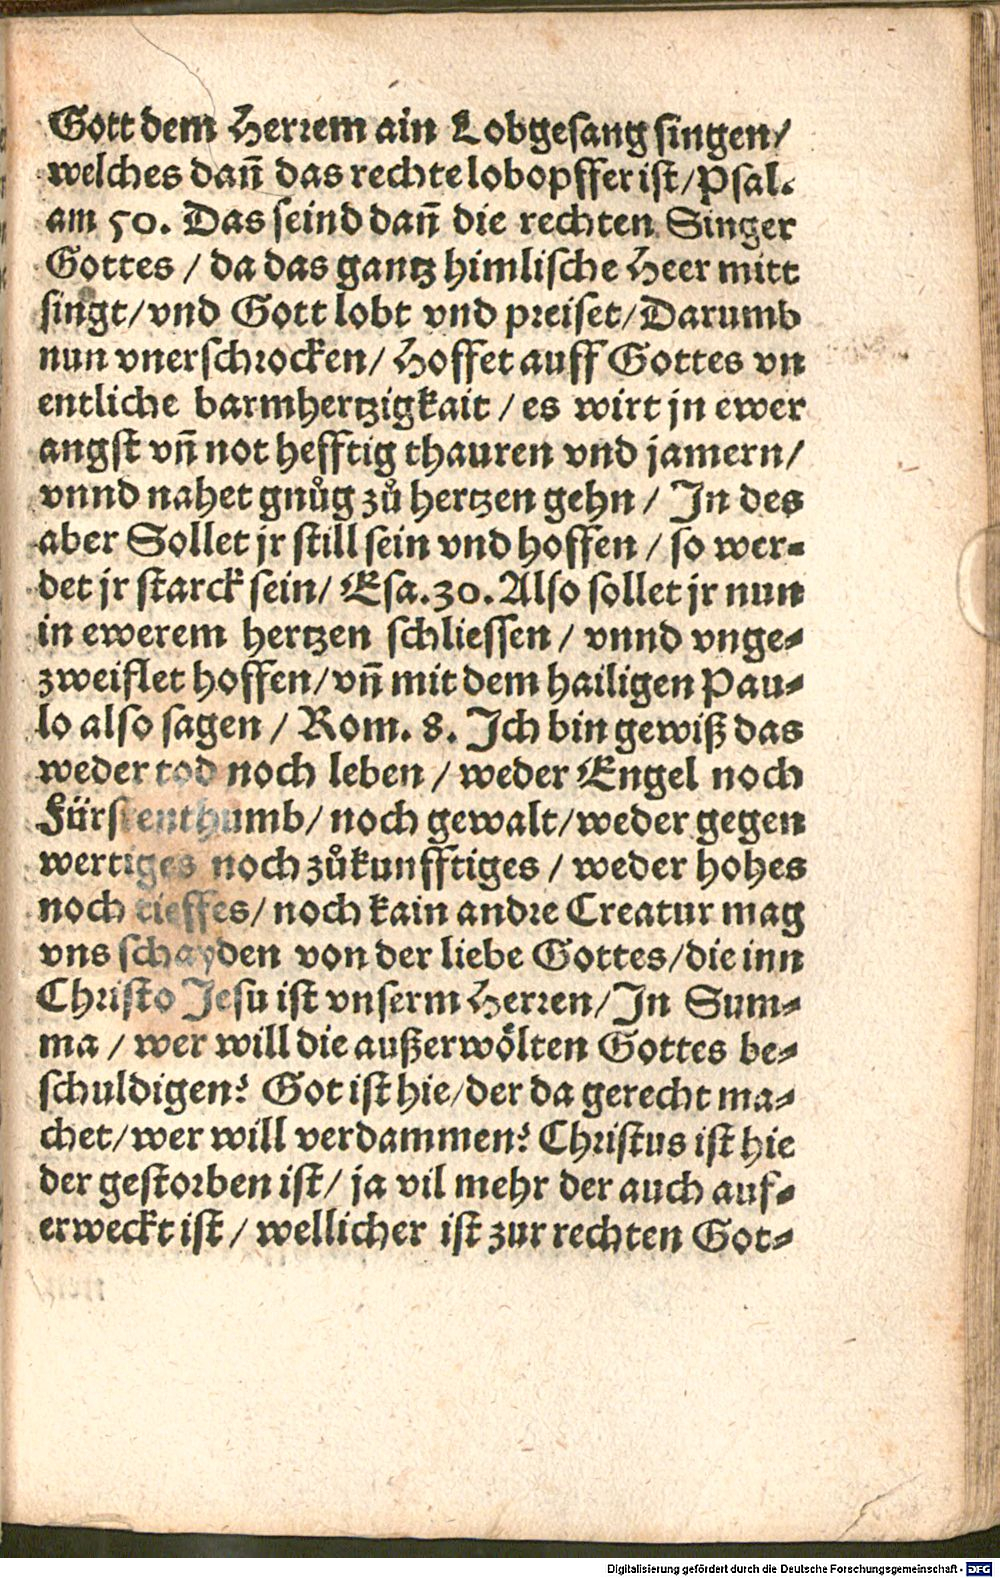 Gott dem Herrem ain Lobgesang singen/
welches dañ das rechte lobopffer ist/Psal.
am 50. Das seind dañ die rechten Singer
Gottes / da das gantz himlische Heer mitt
singt/vnd Gott lobt vnd preiset/Darumb
nun vnerschrocken/ Hoffet auff Gottes vn
entliche barmhertzigkait / es wirt jn ewer
angst vñ not hefftig thauren vnd jamern/
vnnd nahet gnůg zů hertzen gehn / In des
aber Sollet jr still sein vnd hoffen / so wer-
det jr starck sein/ Esa.30. Also sollet jr nun
in ewerem hertzen schliessen / vnnd vnge-
zweiflet hoffen/vñ mit dem hailigen Pau-
lo also sagen / Rom. 8. Ich bin gewiß das
weder tod noch leben / weder Engel noch
Fürstenthumb/ noch gewalt/weder gegen
wertiges noch zůkunfftiges / weder hohes
noch tieffes/ noch kain andre Creatur mag
vns schayden von der liebe Gottes/die inn
Christo Jesu ist vnserm Herren/In Sum-
ma / wer will die außerwölten Gottes be-
schuldigen? Got ist hie/der da gerecht ma-
chet/wer will verdammen? Christus ist hie
der gestorben ist/ ja vil mehr der auch auf-
erweckt ist / wellicher ist zur rechten Got-
Digitalisierung gefördert durch die Deutsche Forschungsgemeinschaft - DFG